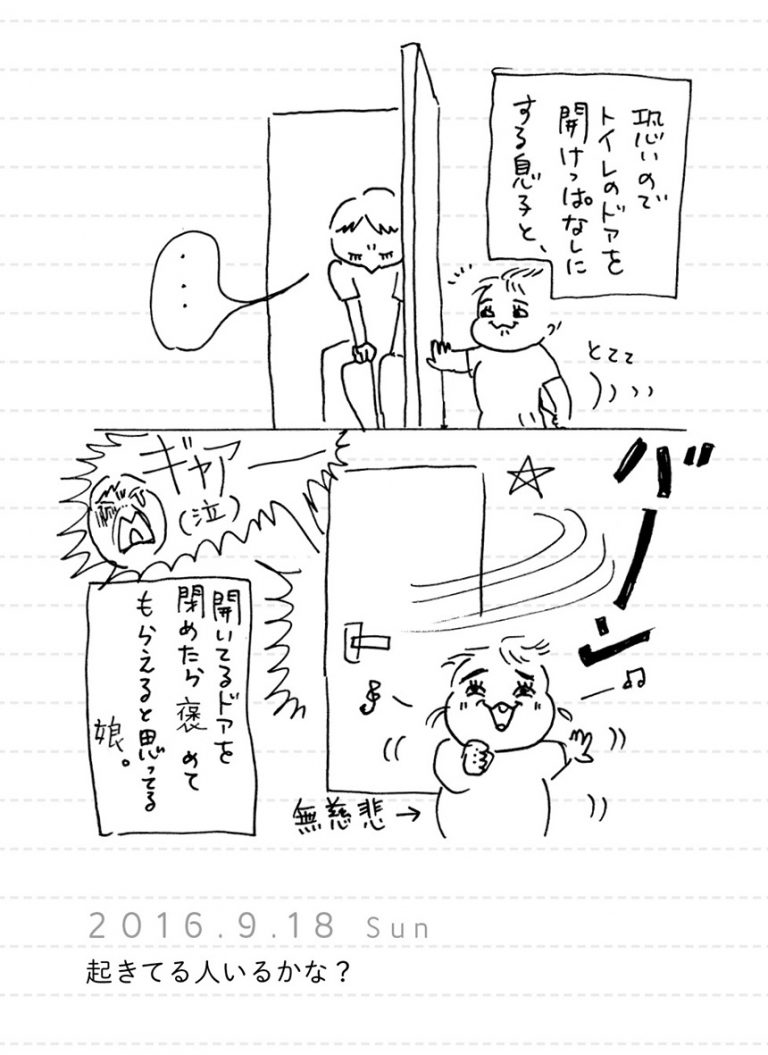 恐いので
トイレのドアを
開けっぱなしに
する息子と、
...
とててて
バーン
ギャアー
(泣)
開いてるドアを
閉めたら褒めて
もらえると思ってる
娘。
無慈悲→
2016.9.18 Sun
起きてる人いるかな?